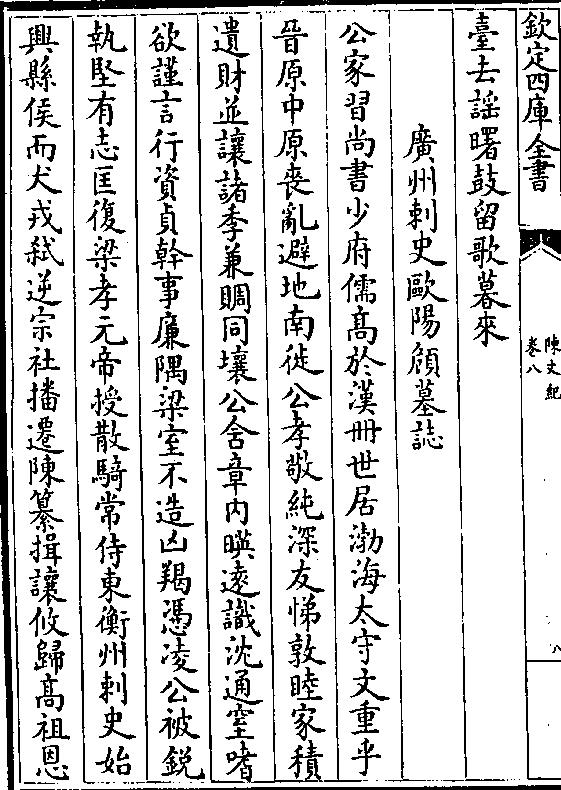 欽定四庫全書
陳文紀
卷八
八
臺去謡曙鼓留歌暮來
廣州刺史歐陽頠墓誌
公家習尚書少府儒髙於漢冊世居渤海太守文重乎
晉原中原喪亂避地南徙公孝敬純深友悌敦睦家積
遺財並讓諸季兼賙同壤公含章内暎逺識沈通窒嗜
欲謹言行資貞幹事廉隅梁室不造凶羯憑凌公被銳
執堅有志匡復梁孝元帝授散騎常侍東衡州刺史始
興縣侯而犬戎弑逆宗社播遷陳纂揖讓攸歸髙祖恩